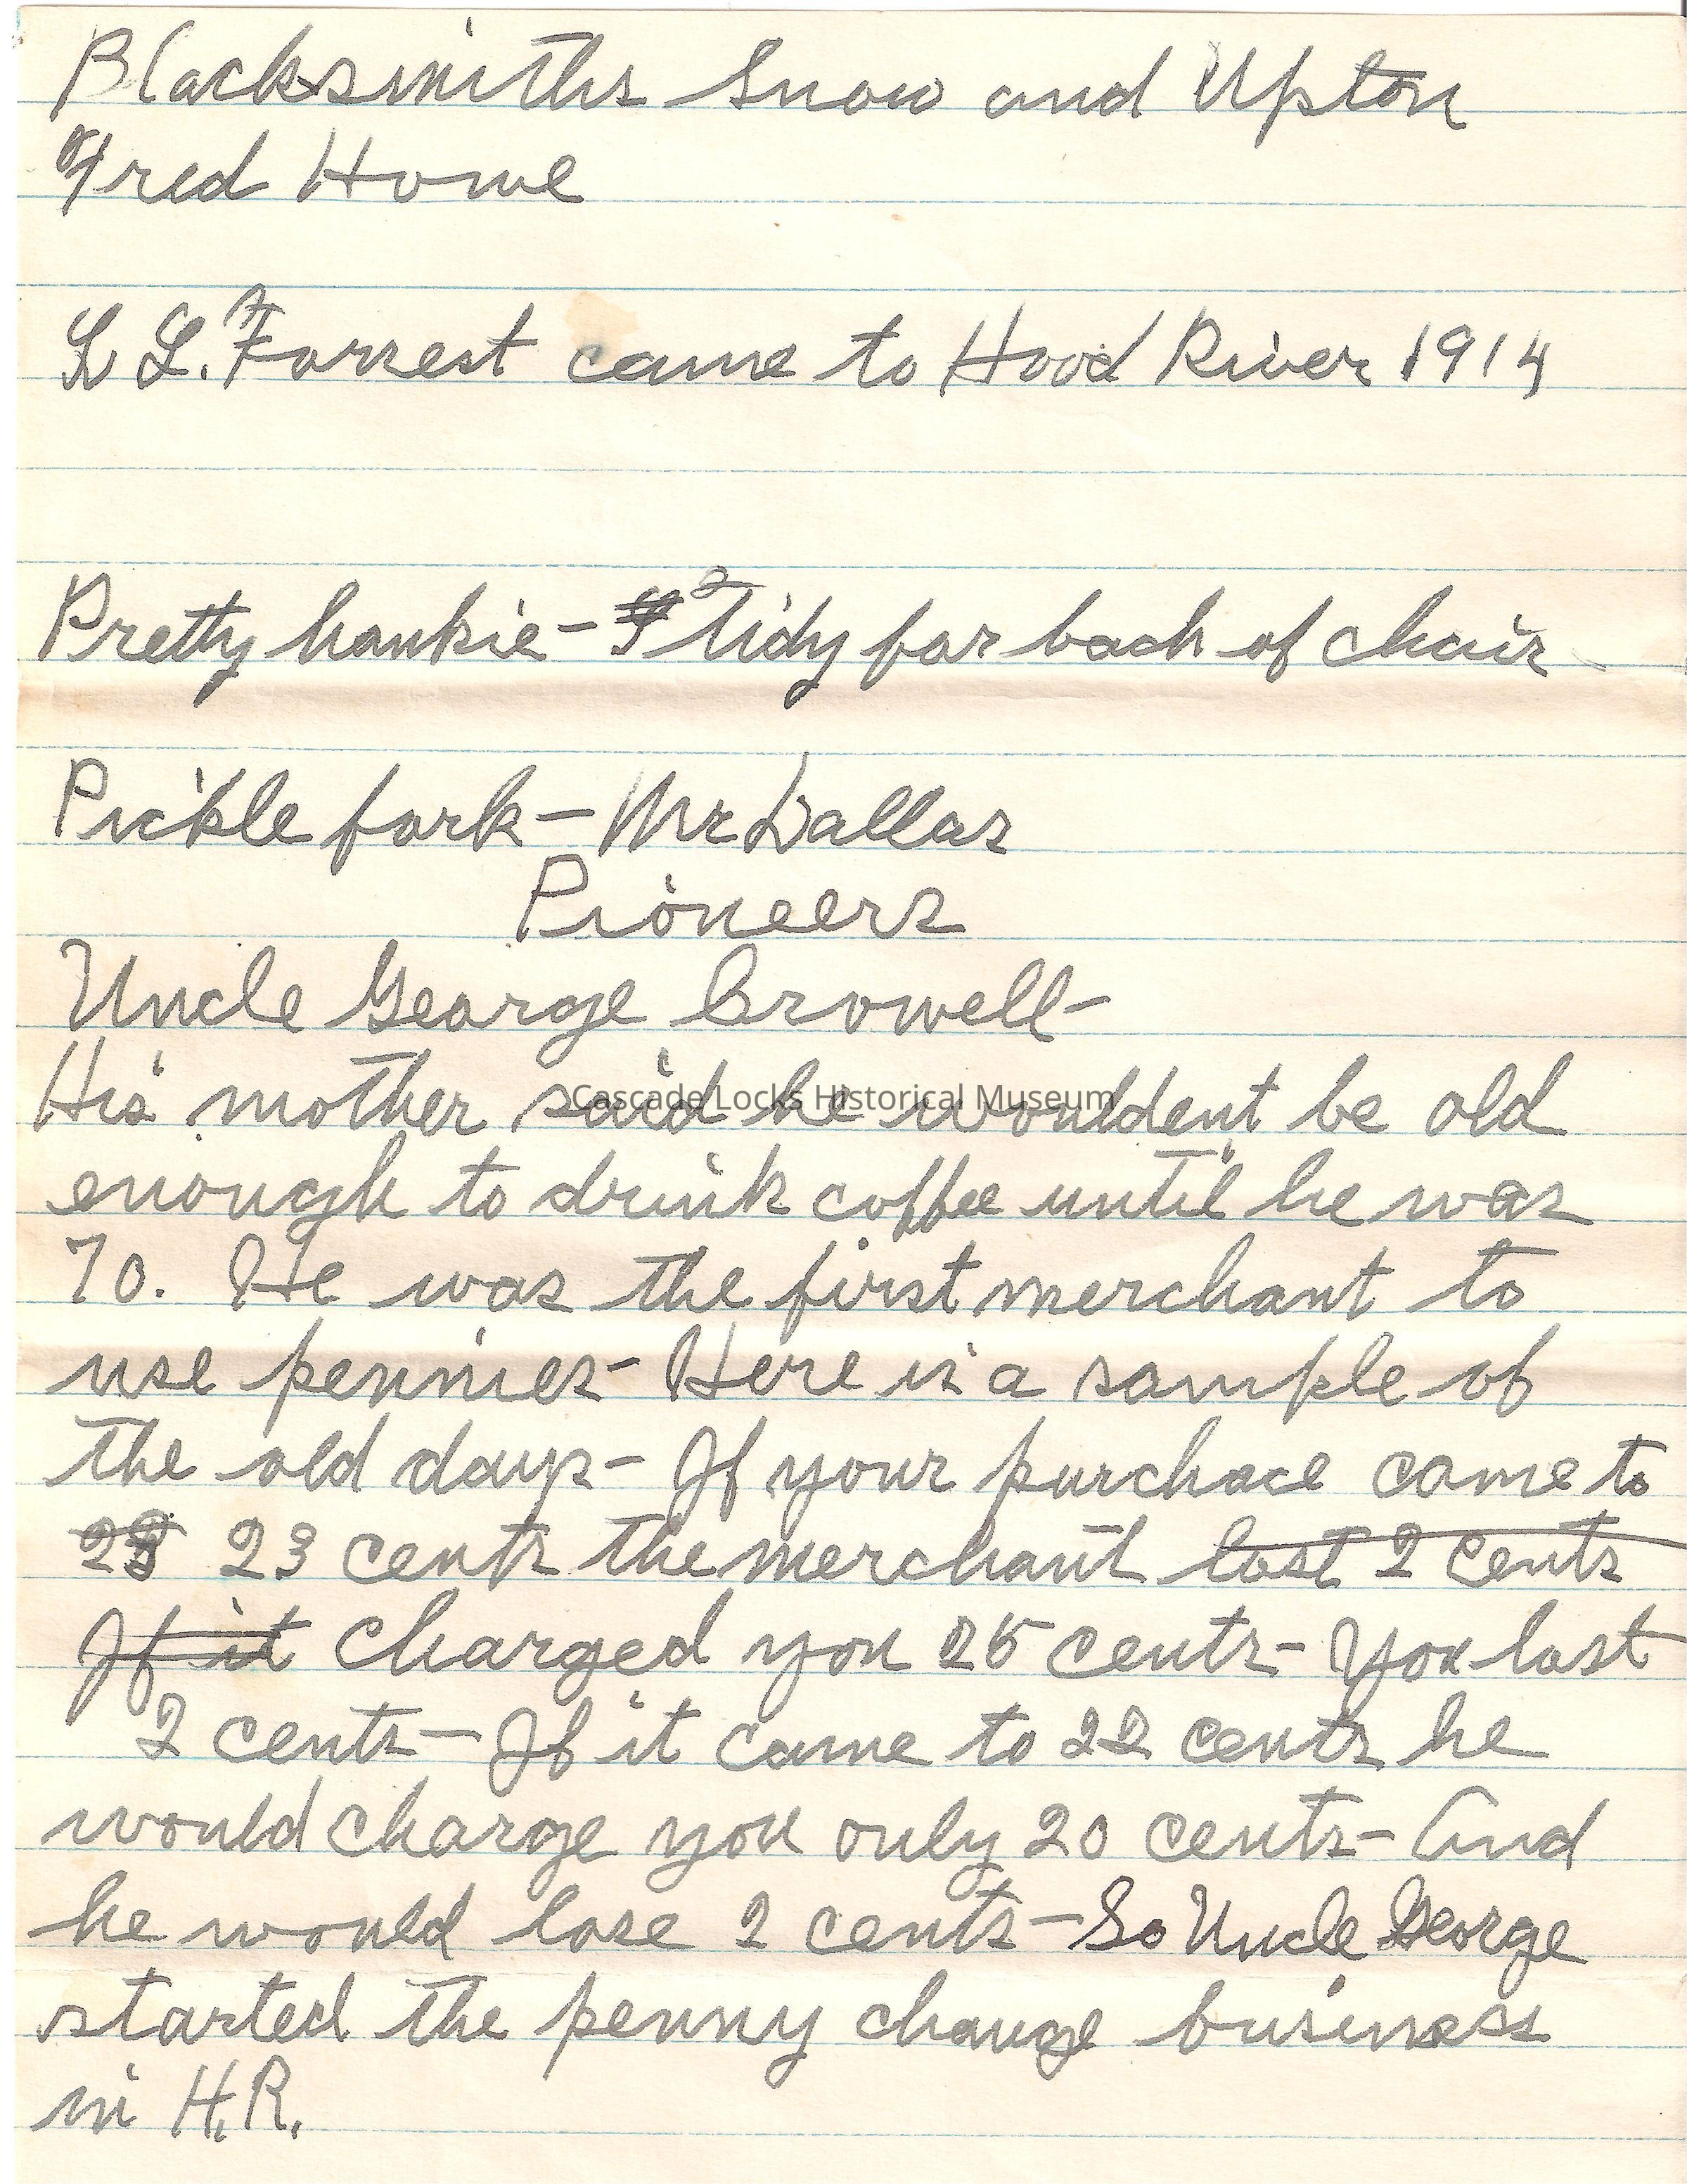 Blacksmiths Snow and Upton
Fred Howe
L L. Forrest came to Hood River 1914
Pretty hankie - Tidy for back of chair
Pickle fork - Mr Dallas
Pioneers
Uncle George Crowell -
His mother said he wouldent be old
Cascade Locks Historical Museum
enough to drink coffee until he was
70. He was the first merchant to
use pennies - Here is a sample of
the old days - If your purchace came to
23 23 cents the merchant lost 2 cents
If it charged you 25 cents - You lost
2 cents - If it came to 22 cents he
would charge you only 20 cents - And
he would lose 2 cents - So Uncle George
started the penny change business
in H.R.